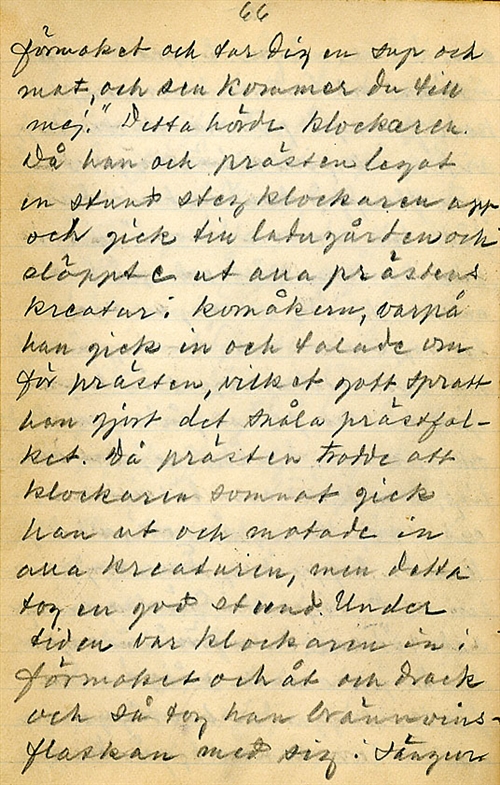 66
förmaket och tar Dig en sup och
mat, och sen kommer du till
mej." Detta hörde klockaren.
Då han och prästen legat
en stund steg klockaren upp
och gick till ladugården och
släppte ut alla prästens
kreatur i kornåkern, varpå
han gick in och talade om
för prästen, vilket gott spratt
han gjort det snåla prästfol-
ket. Då prästen trodde att
klockaren somnat gick
han ut och motade in
alla kreaturen, men detta
tog en god stund. Under
tiden var klockaren in i
förmaket och åt och drack
och så tog han brännvins-
flaskan med sig i sängen.